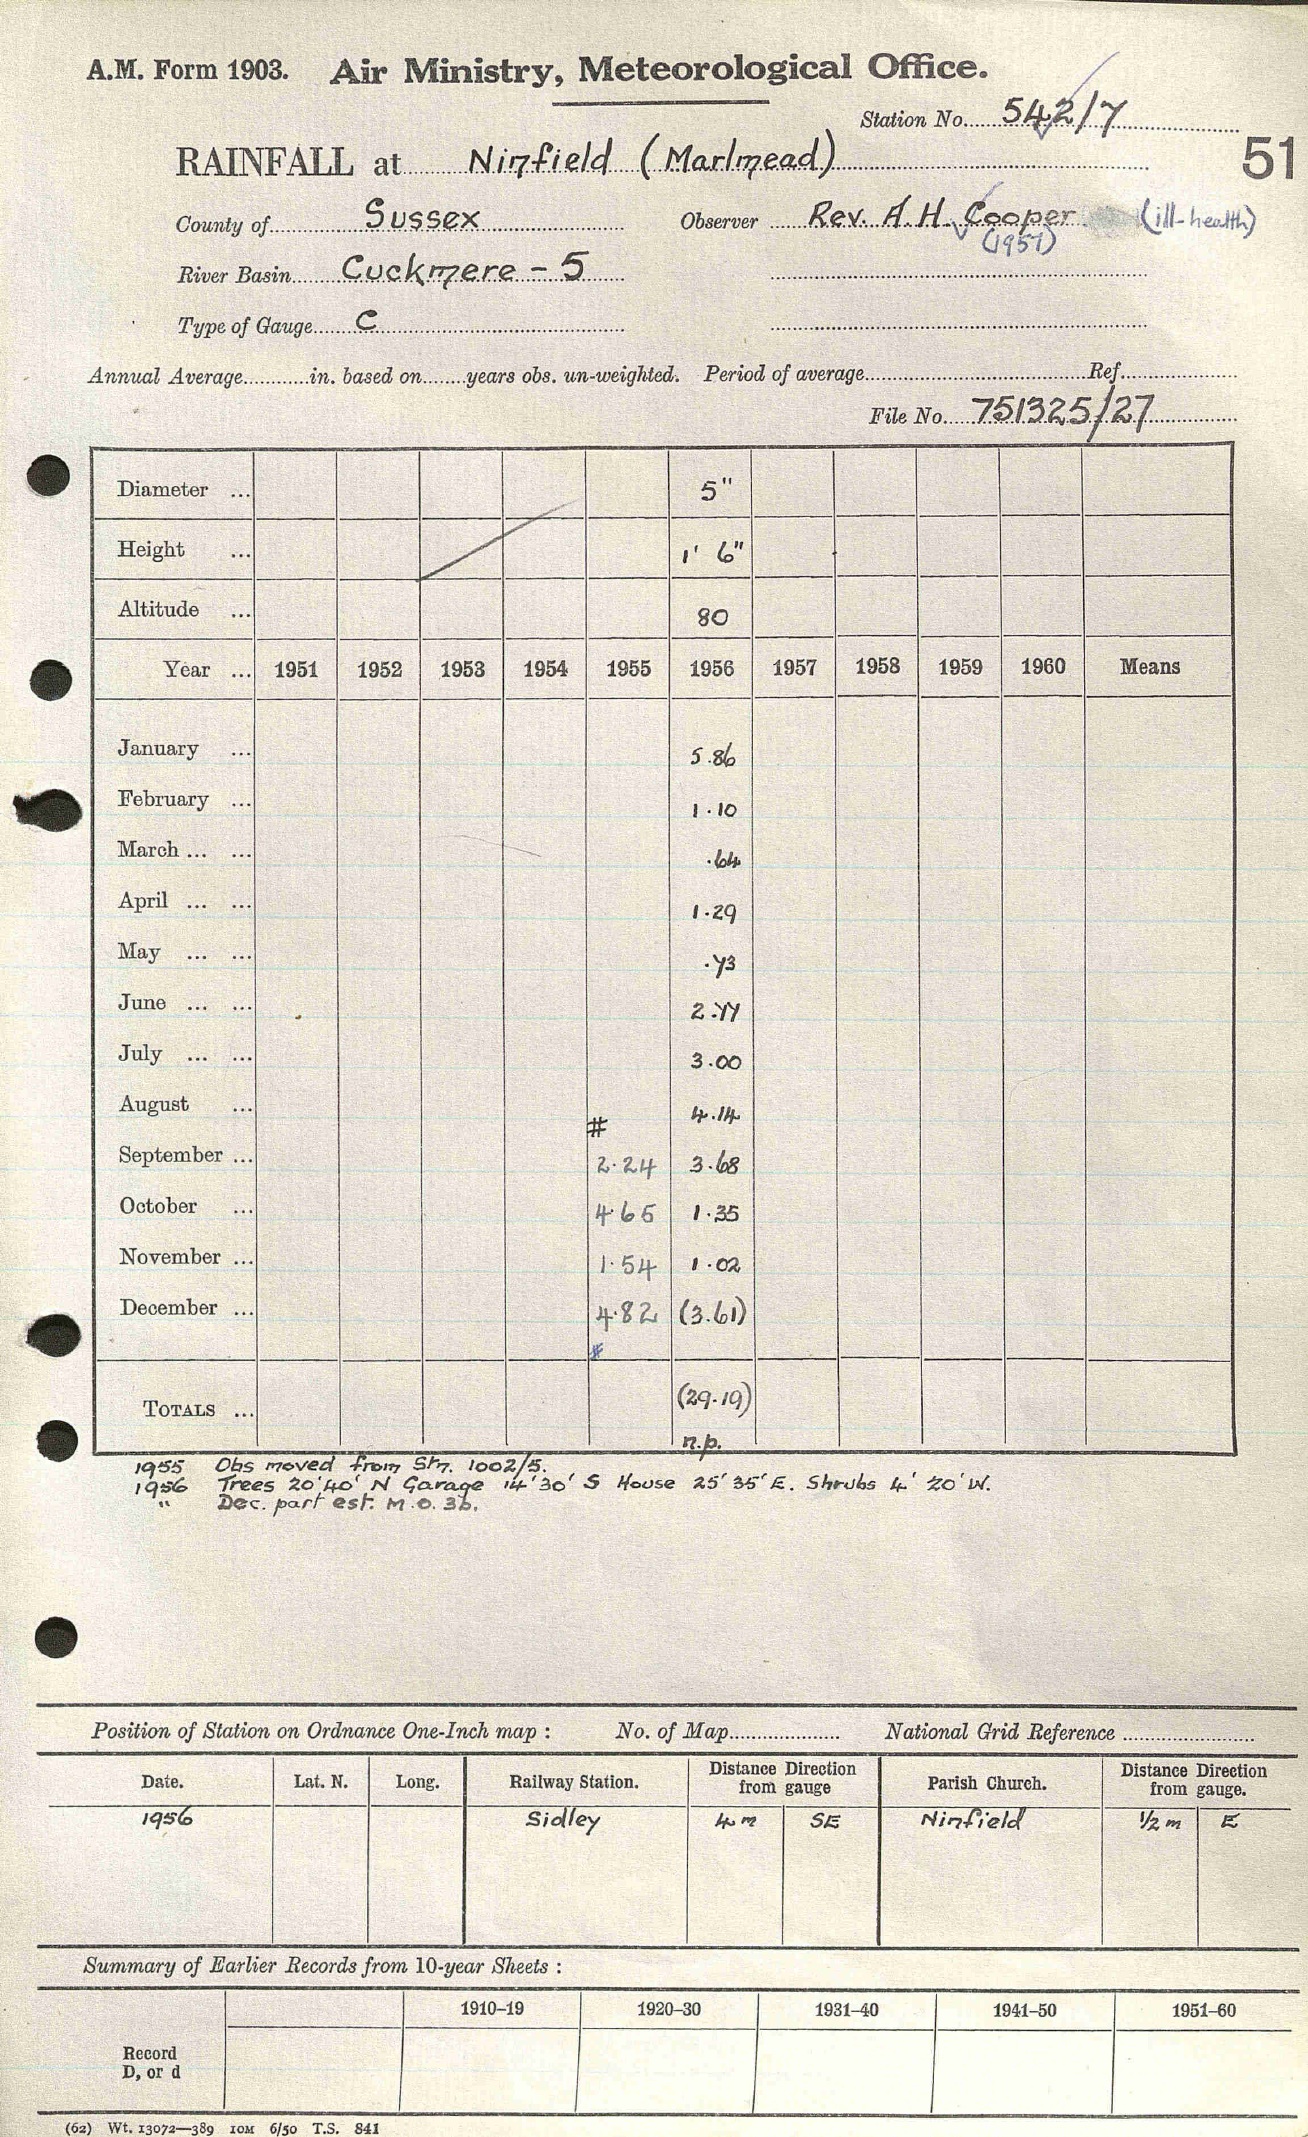 A.M. Form 1903. Air Ministry, Meteorological Office.
Station No. 542/7
51
RAINFALL at Ninfield (Marlmead)
County of Sussex Observer Rev. A.H. Cooper (ill-health)
(1957)
River Basin Cuckmere - 5
Type of Gauge C
Annual Average in. based on years obs. un-weighted. Period of average Ref.
File No. 751325/27
Diameter ... 5"
Height ... 1' 6"
Altitude ... 80
Year ... 1951 1952 1953 1954 1955 1956 1957 1958 1959 1960 Means
January ... 5.86
February ... 1.10
March ... ... .64
April ... ... 1.29
May ... ... .73
June ... ... 2.77
July ... ... 3.00
August ... 4.14
#
September ... 2.24 3.68
October ... 4.65 1.35
November ... 1.54 1.02
December ... 4.82 (3.61)
#
TOTALS ... (29.19)
n.p.
1955 Obs moved from Stn. 1002/5.
1956 Trees 20' 40' N Garage 14' 30' S House 25' 35' E. Shrubs 4' 20' W.
" Dec. part est. M.O. 3b.
Position of Station on Ordnance One-Inch map : No. of Map National Grid Reference
Date. Lat. N. Long. Railway Station. Distance Direction from gauge Parish Church. Distance Direction from gauge.
1956 Sidley 4 m SE Ninfield 1/2 m E
Summary of Earlier Records from 10-year Sheets :
1910–19 1920–30 1931–40 1941–50 1951–60
Record
D, or d
(62) Wt. 13072—389 10M 6/50 T.S. 841